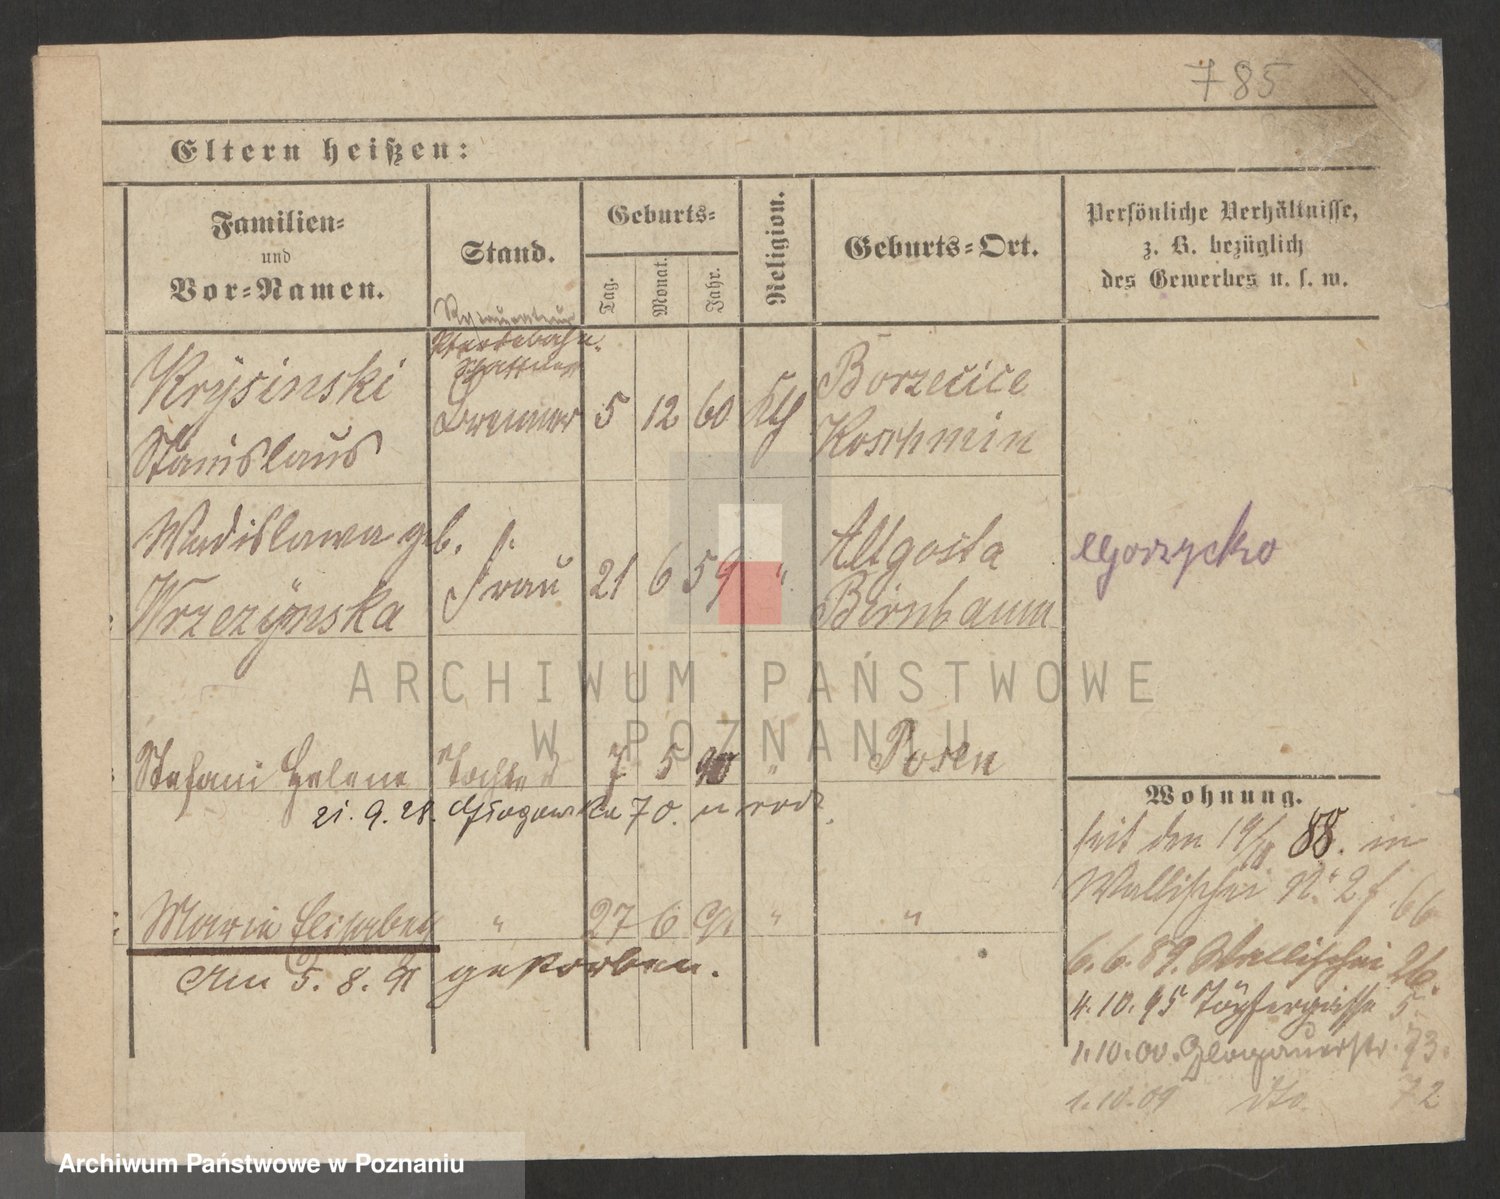 785
Eltern heißen:
Familien-
und
Vor-Namen.
Stand.
Geburts-
Tag.
Monat.
Jahr.
Religion.
Geburts-Ort.
Persönliche Verhältnisse,
z. B. bezüglich
des Gewerbes u. s. w.
Restaurateur
Pferdebahn-
Schaffner
Krysinski
Stanislaus
Brenner 5 12 60 Kth
Borzecice
Koschmin
Wadislawa geb.
Wrzezynska
Frau 21 6 59 "
Altgosta
Birnbaum
Gorzycko
Stefani Helene Tochter 7 5 90 " Posen
21. 9. 28. Glogowska 70. u
Maria Elisabeth " 27 6 91 " "
Am 5. 8. 91 gestorben.
Wohnung.
seit den 19/ 88. in
Wallischei No 2 f 66
6. 6. 89. Wallischei 26.
4. 10. 95 Töpfergasse 5
1. 10. 00. Glogauerstr. 73.
1. 10. 09 dto. 72
ARCHIWUM PAŃSTWOWE
W POZNANIU
Archiwum Państwowe w Poznaniu